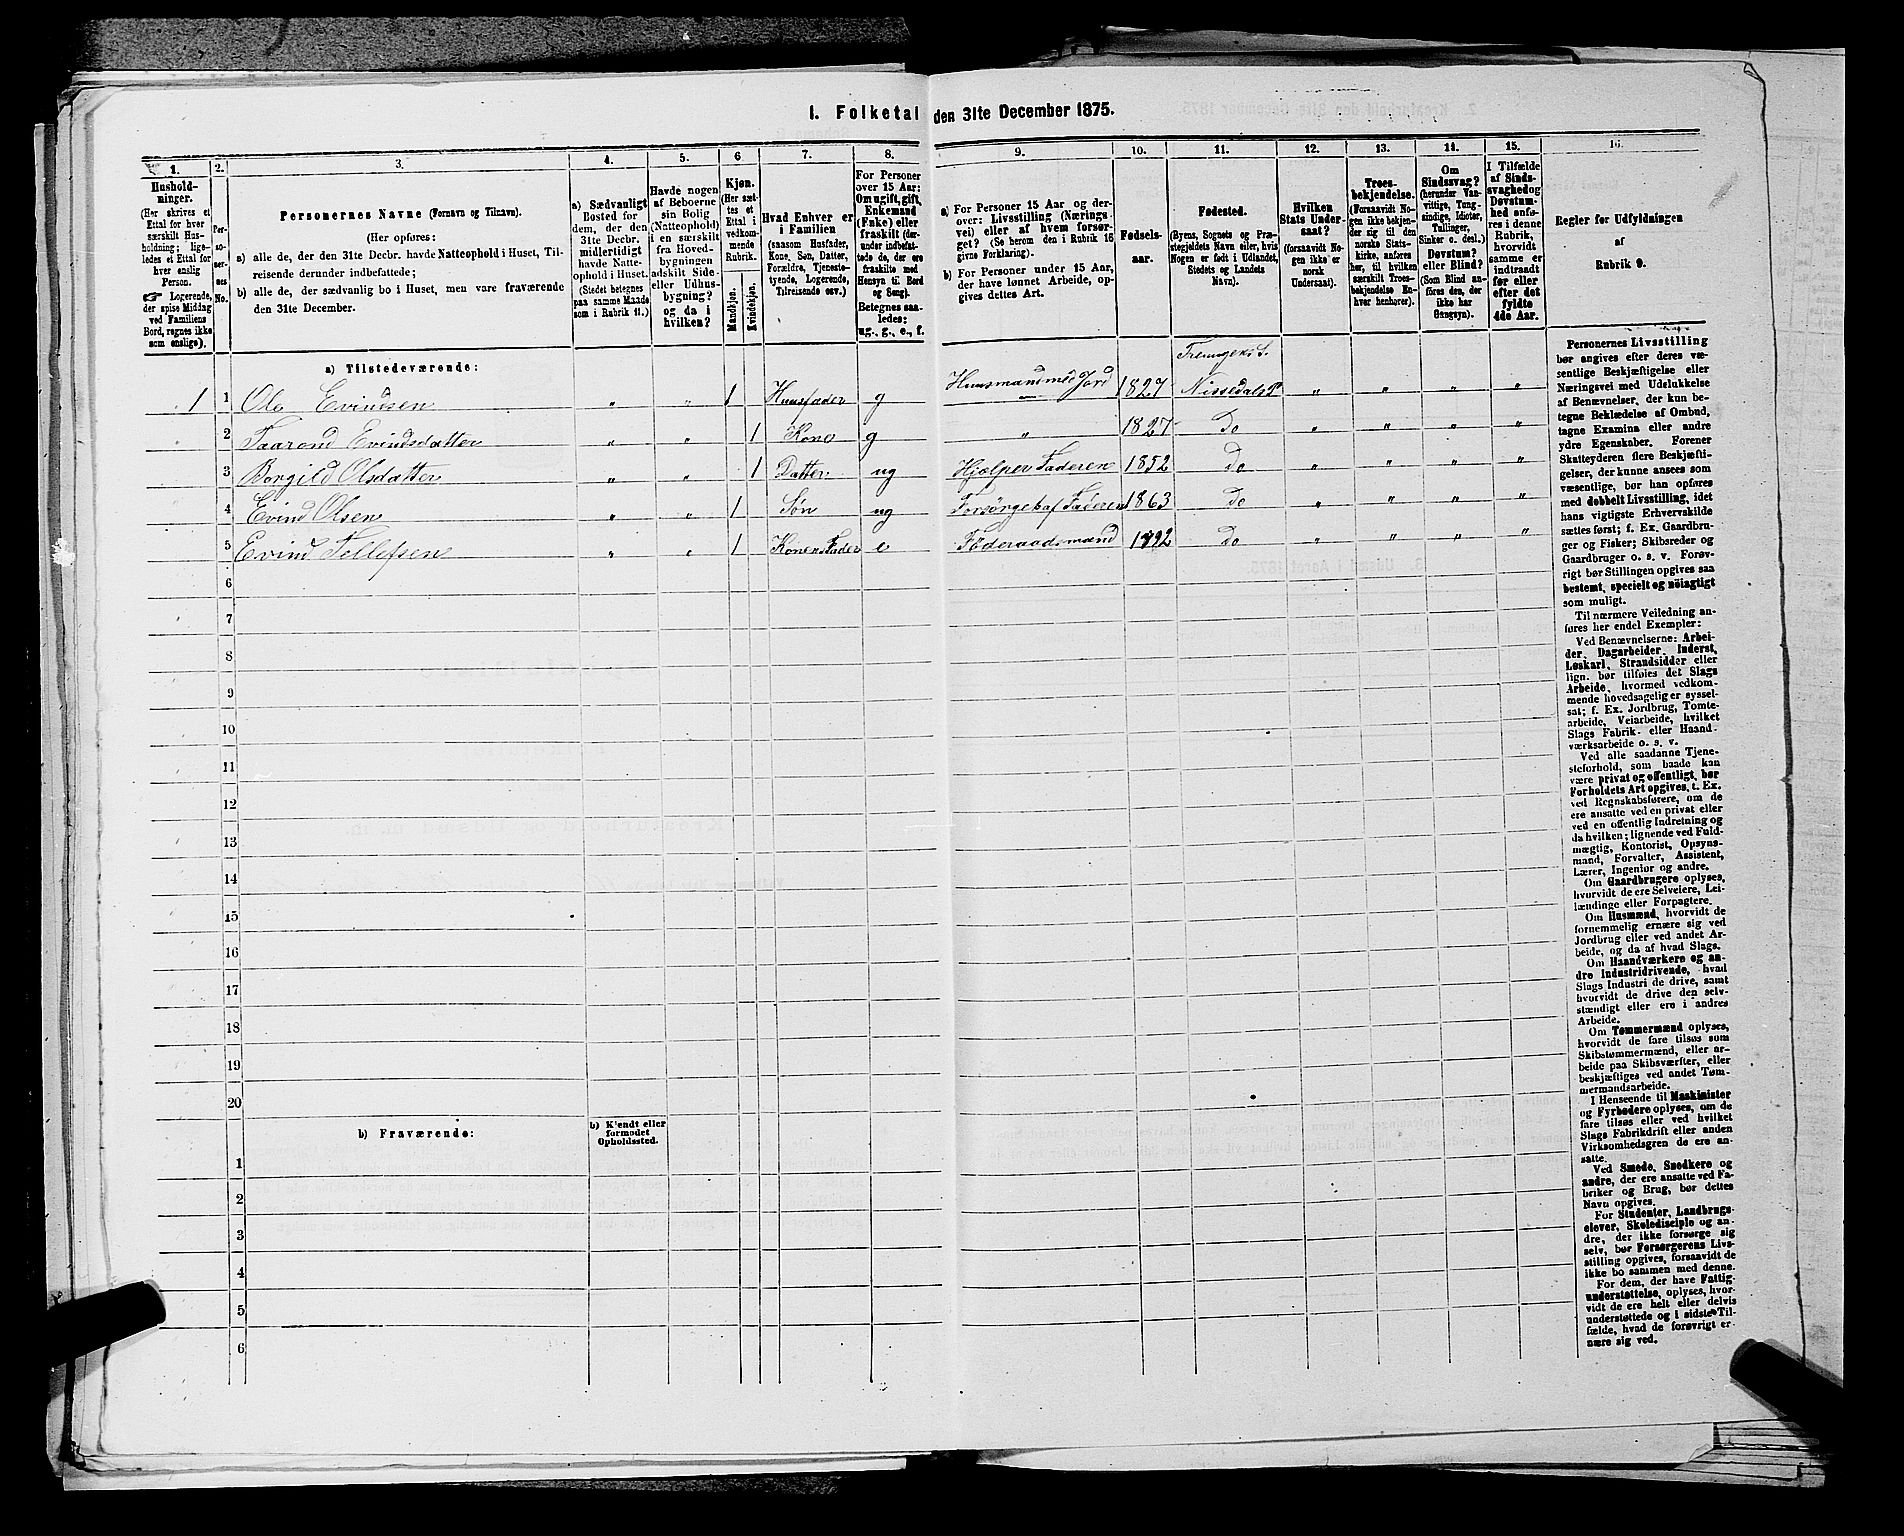 I. Folketal den 31te December 1875.
1. 2. 3. 4. 5. 6 7. 8. 9. 10. 11. 12. 13. 14. 15. 16.
Hushold-
ninger.
(Her skrives et
Ettal for hver
særskilt Hus-
holdning; lige-
ledes et Ettal for
hver enslig
Person.
☞ Logerende,
der spise Middag
ved Familiens
Bord, regnes ikke
som enslige).
Per-
so-
ner-
nes
No.
Personernes Navne (Fornavn og Tilnavn).
(Her opføres:
a) alle de, der den 31te Decbr. havde Natteophold i Huset, Til-
reisende derunder indbefattede;
b) alle de, der sædvanlig bo i Huset, men vare fraværende
den 31te December.
a) Sædvanligt
Bosted for
dem, der den
31te Decbr.
midlertidigt
havde Natte-
ophold i Huset.
(Stedet betegnes
paa samme Maade
som i Rubrik 11.)
Havde nogen
af Beboerne
sin Bolig
(Natteophold)
i en særskilt
fra Hoved-
bygningen
adskilt Side-
eller Udhus-
bygning?
og da i
hvilken?
Kjøn.
(Her sæt-
tes et
Ettal i
vedkom-
mende
Rubrik.
Mandkjøn.
Kvindekjøn.
Hvad Enhver er
i Familien
(saasom Husfader,
Kone, Søn, Datter,
Forældre, Tjeneste-
tyende, Logerende,
Tilreisende osv.)
For Personer
over 15 Aar:
Om ugift, gift,
Enkemand
(Enke) eller
fraskilt (der-
under indbefat-
tede de, der ere
fraskilte med
Hensyn til Bord
og Seng).
Betegnes saa-
ledes:
ug., g., e., f.
a) For Personer 15 Aar og der-
over: Livsstilling (Nærings-
vei) eller af hvem forsør-
get? (Se herom den i Rubrik 16
givne Forklaring).
b) For Personer under 15 Aar,
der have lønnet Arbeide, op-
gives dettes Art.
Fødsels-
aar.
Fødested.
(Byens, Sognets og Præ-
stegjeldets Navn eller, hvis
Nogen er født i Udlandet,
Stedets og Landets
Navn).
Hvilken
Stats Under-
saat?
(forsaavidt No-
gen ikke er
norsk
Undersaat).
Troes-
bekjendelse.
(Forsaavidt No-
gen ikke bekjen-
der sig til den
norske Stats-
kirke, anføres
her, til hvilken
særskilt Troes-
bekjendelse En-
hver henhører).
Om
Sindssvag?
(herunder Van-
vittige, Tung-
sindige, Idioter,
Tullinger,
Sinker o. desl.)
Døvstum?
eller Blind?
(Som Blind an-
føres den, der
ikke har
Gangsyn).
I Tilfælde
af Sinds-
svaghed og
Døvstum-
hed anfø-
res i denne
Rubrik,
hvorvidt
samme er
indtraadt
før eller
efter det
fyldte
4de Aar.
Regler for Udfyldningen
af
Rubrik 9.
a) Tilstedeværende:
1 1 Ole Evindsen " " 1 Huusfader g Huusmand med Jord 1827 Nissedals P " " " "
2 Taarand Evindsdatter " " 1 Kone g " 1827 Do " " " "
3 Borgild Olsdatter " " 1 Datter ug Hjælper Faderen 1852 Do " " " "
4 Evind Olsen " " 1 Søn ug Forsørget af Faderen 1863 Do " " " "
5 Evind Tellefsen " " 1 Konens Fader e Föderaadsmand 1792 Do " " " "
6
7
8
9
10
11
12
13
14
15
16
17
18
19
20
b) Fraværende:
b) Kjendt eller
formodet
Opholdssted.
1
2
3
4
5
6
Personernes Livsstilling
bør angives efter deres væ-
sentlige Beskjæftigelse eller
Næringsvei med Udelukkelse
af Benævnelser, der kun be-
tegne Beklædelse af Ombud,
tagne Examina eller andre
ydre Egenskaber. Forener
Skatteyderen flere Beskjæfti-
gelser, der kunne ansees som
væsentlige, bør han opføres
med dobbelt Livsstilling, idet
hans vigtigste Erhvervskilde
sættes først; f. Ex. Gaardbru-
ger og Fisker; Skibsreder og
Gaardbruger o. s. v. Forøv-
rigt bør Stillingen opgives saa
bestemt, specielt og nöiagtigt
som muligt.
Til nærmere Veiledning an-
føres her endel Exempler:
Ved Benævnelserne: Arbei-
der, Dagarbeider, Inderst,
Løskarl, Strandsidder eller
lign. bør tilføies det Slags
Arbeide, hvormed vedkom-
mende hovedsagelig er syssel-
sat; f. Ex. Jordbrug, Tomte-
arbeide, Veiarbeide, hvilket
Slags Fabrik- eller Haand-
værksarbeide o. s. v.
Ved alle saadanne Tjene-
steforhold, som baade kan
være privat og offentligt, bør
Forholdets Art opgives, t. Ex.
ved Regnskabsførere, om de
ere ansatte ved en privat eller
ved en offentlig Indretning og
da hvilken; lignende ved Fuld-
mægtig, Kontorist, Opsyns-
mand, Forvalter, Assistent,
Lærer, Ingeniør og andre.
Om Gaardbrugere oplyses,
hvorvidt de ere Selveiere, Lei-
lændinge eller Forpagtere.
Om Husmænd, hvorvidt de
fornemmelig ernære sig ved
Jordbrug eller ved andet Ar-
beide, og da af hvad Slags.
Om Haandværkere og an-
dre Industridrivende, hvad
Slags Industri de drive, samt
hvorvidt de drive den selv-
stændigt eller ere i andres
Arbeide.
Om Tømmermænd oplyses,
hvorvidt de fare tilsøs som
Skibstømmermænd, eller ar-
beide paa Skibsværfter, eller
beskjæftiges ved andet Tøm-
mermandsarbeide.
I Henseende til Maskinister
og Fyrbødere oplyses, om de
fare tilsøs eller ved hvilket
Slags Fabrikdrift eller anden
Virksomhedsgren de ere an-
satte.
Ved Smede, Snedkere og
andre, der ere ansatte ved Fa-
briker og Brug, bør dettes
Navn opgives.
For Studenter, Landbrugs-
elever, Skoledisciple og an-
dre, der ikke forsørge sig
selv, bør Forsørgerens Livs-
stilling opgives, forsaavidt de
ikke bo sammen med denne.
For dem, der have Fattig-
understøttelse, oplyses, hvor-
vidt de ere helt eller delvis
understøttede og i sidste Til-
fælde, hvad de forøvrigt er-
nære sig ved.